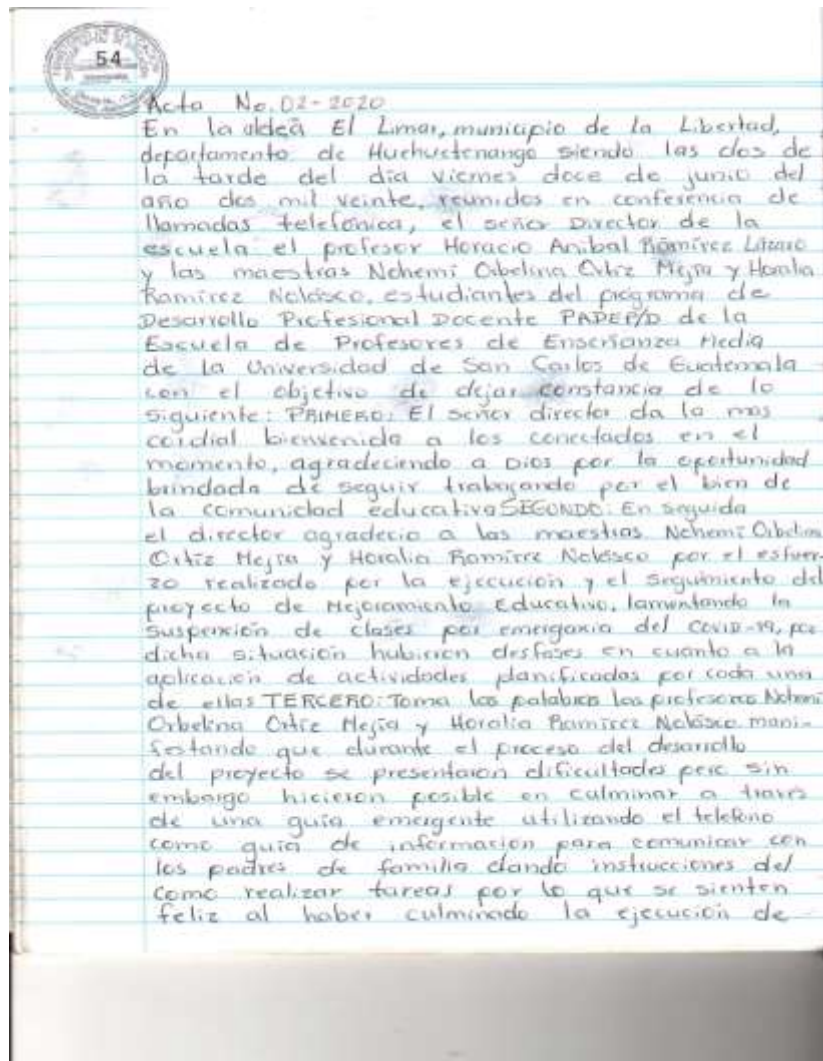 54
Acta No. 02-2020
En la aldea El Limar, municipio de la Libertad,
departamento de Huehuetenango siendo las dos de
la tarde del día viernes doce de junio del
año dos mil veinte, reunidos en conferencia de
llamadas telefónica, el señor Director de la
escuela el profesor Horacio Anibal Ramírez Lázaro
y las maestras Nehemi Orbelina Ortiz Mejía y Horalia
Ramírez Nolasco, estudiantes del programa de
Desarrollo Profesional Docente PADEP/D de la
Escuela de Profesores de Enseñanza Media
de la Universidad de San Carlos de Guatemala
con el objetivo de dejar constancia de lo
siguiente: PRIMERO: El señor director da la mas
cordial bienvenida a los conectados en el
momento, agradeciendo a Dios por la oportunidad
brindada de seguir trabajando por el bien de
la comunidad educativa SEGUNDO: En seguida
el director agradecio a las maestras Nehemi Orbelina
Ortiz Mejía y Horalia Ramírez Nolasco por el esfuer-
zo realizado por la ejecución y el seguimiento del
proyecto de Mejoramiento Educativo, lamentando la
suspensión de clases por emergencia del COVID-19, por
dicha situación hubieron desfases en cuanto a la
aplicación de actividades planificadas por cada una
de ellas TERCERO: Toma las palabras las profesoras Nehemi
Orbelina Ortiz Mejía y Horalia Ramírez Nolasco mani-
festando que durante el proceso del desarrollo
del proyecto se presentaron dificultades pero sin
embargo hicieron posible en culminar a través
de una guía emergente utilizando el teléfono
como guía de información para comunicar con
los padres de familia dando instrucciones del
como realizar tareas por lo que se sienten
feliz al haber culminado la ejecución de